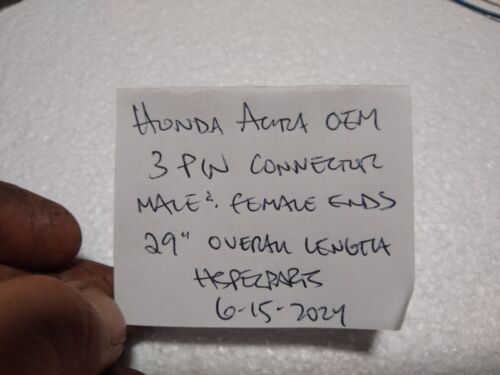 HONDA ACURA OEM
3 PIN CONNECTOR
MALE & FEMALE ENDS
29" OVERALL LENGTH
HSPECPARTS
6-15-2024